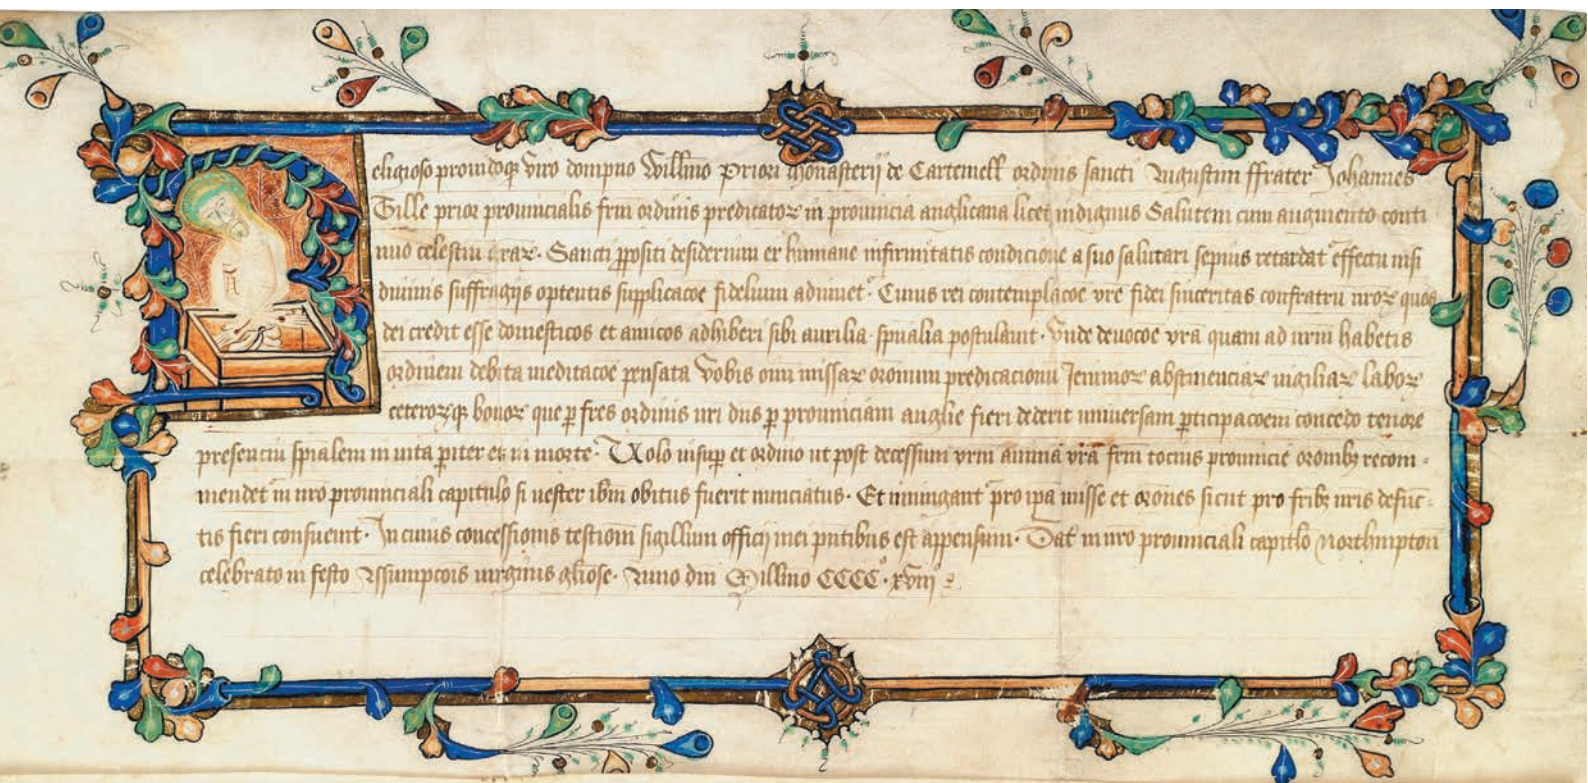 Religioso prouidoq; viro dompno Willmo Priori Monasterij de Cartemell ordinis sancti Augustini ffrater Johannes
Tille prior prouincialis frm ordinis predicatoꝝ in prouincia anglicana licet indignus Salutem cum augmento conti
nuo celestiu graꝝ. Sancti ꝓpositi desiderium ex humane infirmitatis condicione a suo salutari sepius retardat effectu nisi
diuinis suffragijs optentis supplicacoe fidelium adiuuet. Cuius rei contemplacoe vre fidei sinceritas confratru nroꝝ quos
dei credit esse domesticos et amicos adhiberi sibi auxilia spualia postulauit. Vnde deuocoe vra quam ad nrm habetis
ordinem debita meditacoe pensata Vobis oim missaꝝ oronum predicacionu Jeiunioꝝ abstinenciaꝝ vigiliaꝝ laboꝝ
ceteroꝝq; bonoꝝ que ꝑ fres ordinis nri dns ꝑ prouinciam anglie fieri dederit uniuersam ꝑticipacoem concedo tenore
presenciu spialem in uita ꝑiter et in morte. Uolo insuꝑ et ordino ut post decessum vrm anima vra frm tocius prouincie oronibꝫ recom-
mendet in nro prouinciali capitulo si uester ibm obitus fuerit nunciatus. Et iniungant pro ipa misse et orones sicut pro fribꝫ nris defunc-
tis fieri consueuit. In cuius concessionis testiom sigillum officij mei pntibus est appensum. Dat in nro prouinciali capitlo northmpton
celebrato in festo Assumpcois uirginis gliose. Anno dni Millmo CCCC°. xviij°.